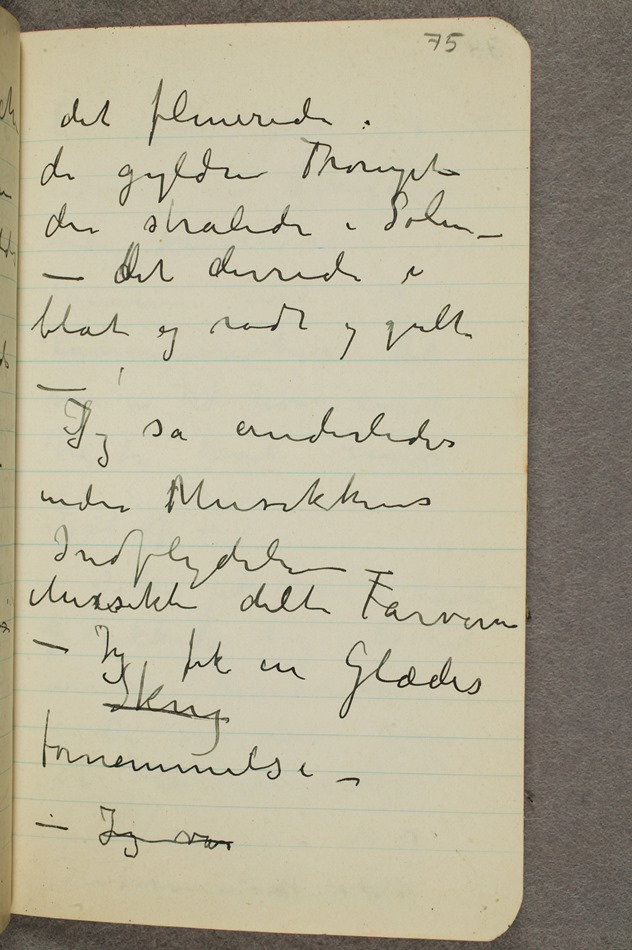 75
det flimrede.
de gyldne Trompet
der stralede i Solen –
– det dirrede i
blåt og rødt og gult
–
Jeg så anderledes
under Musikkens
Indflydelsen –
Musikken delte Farverne
– Jeg fik en Glædes
Skrig
fornemmelse –
– Jeg var